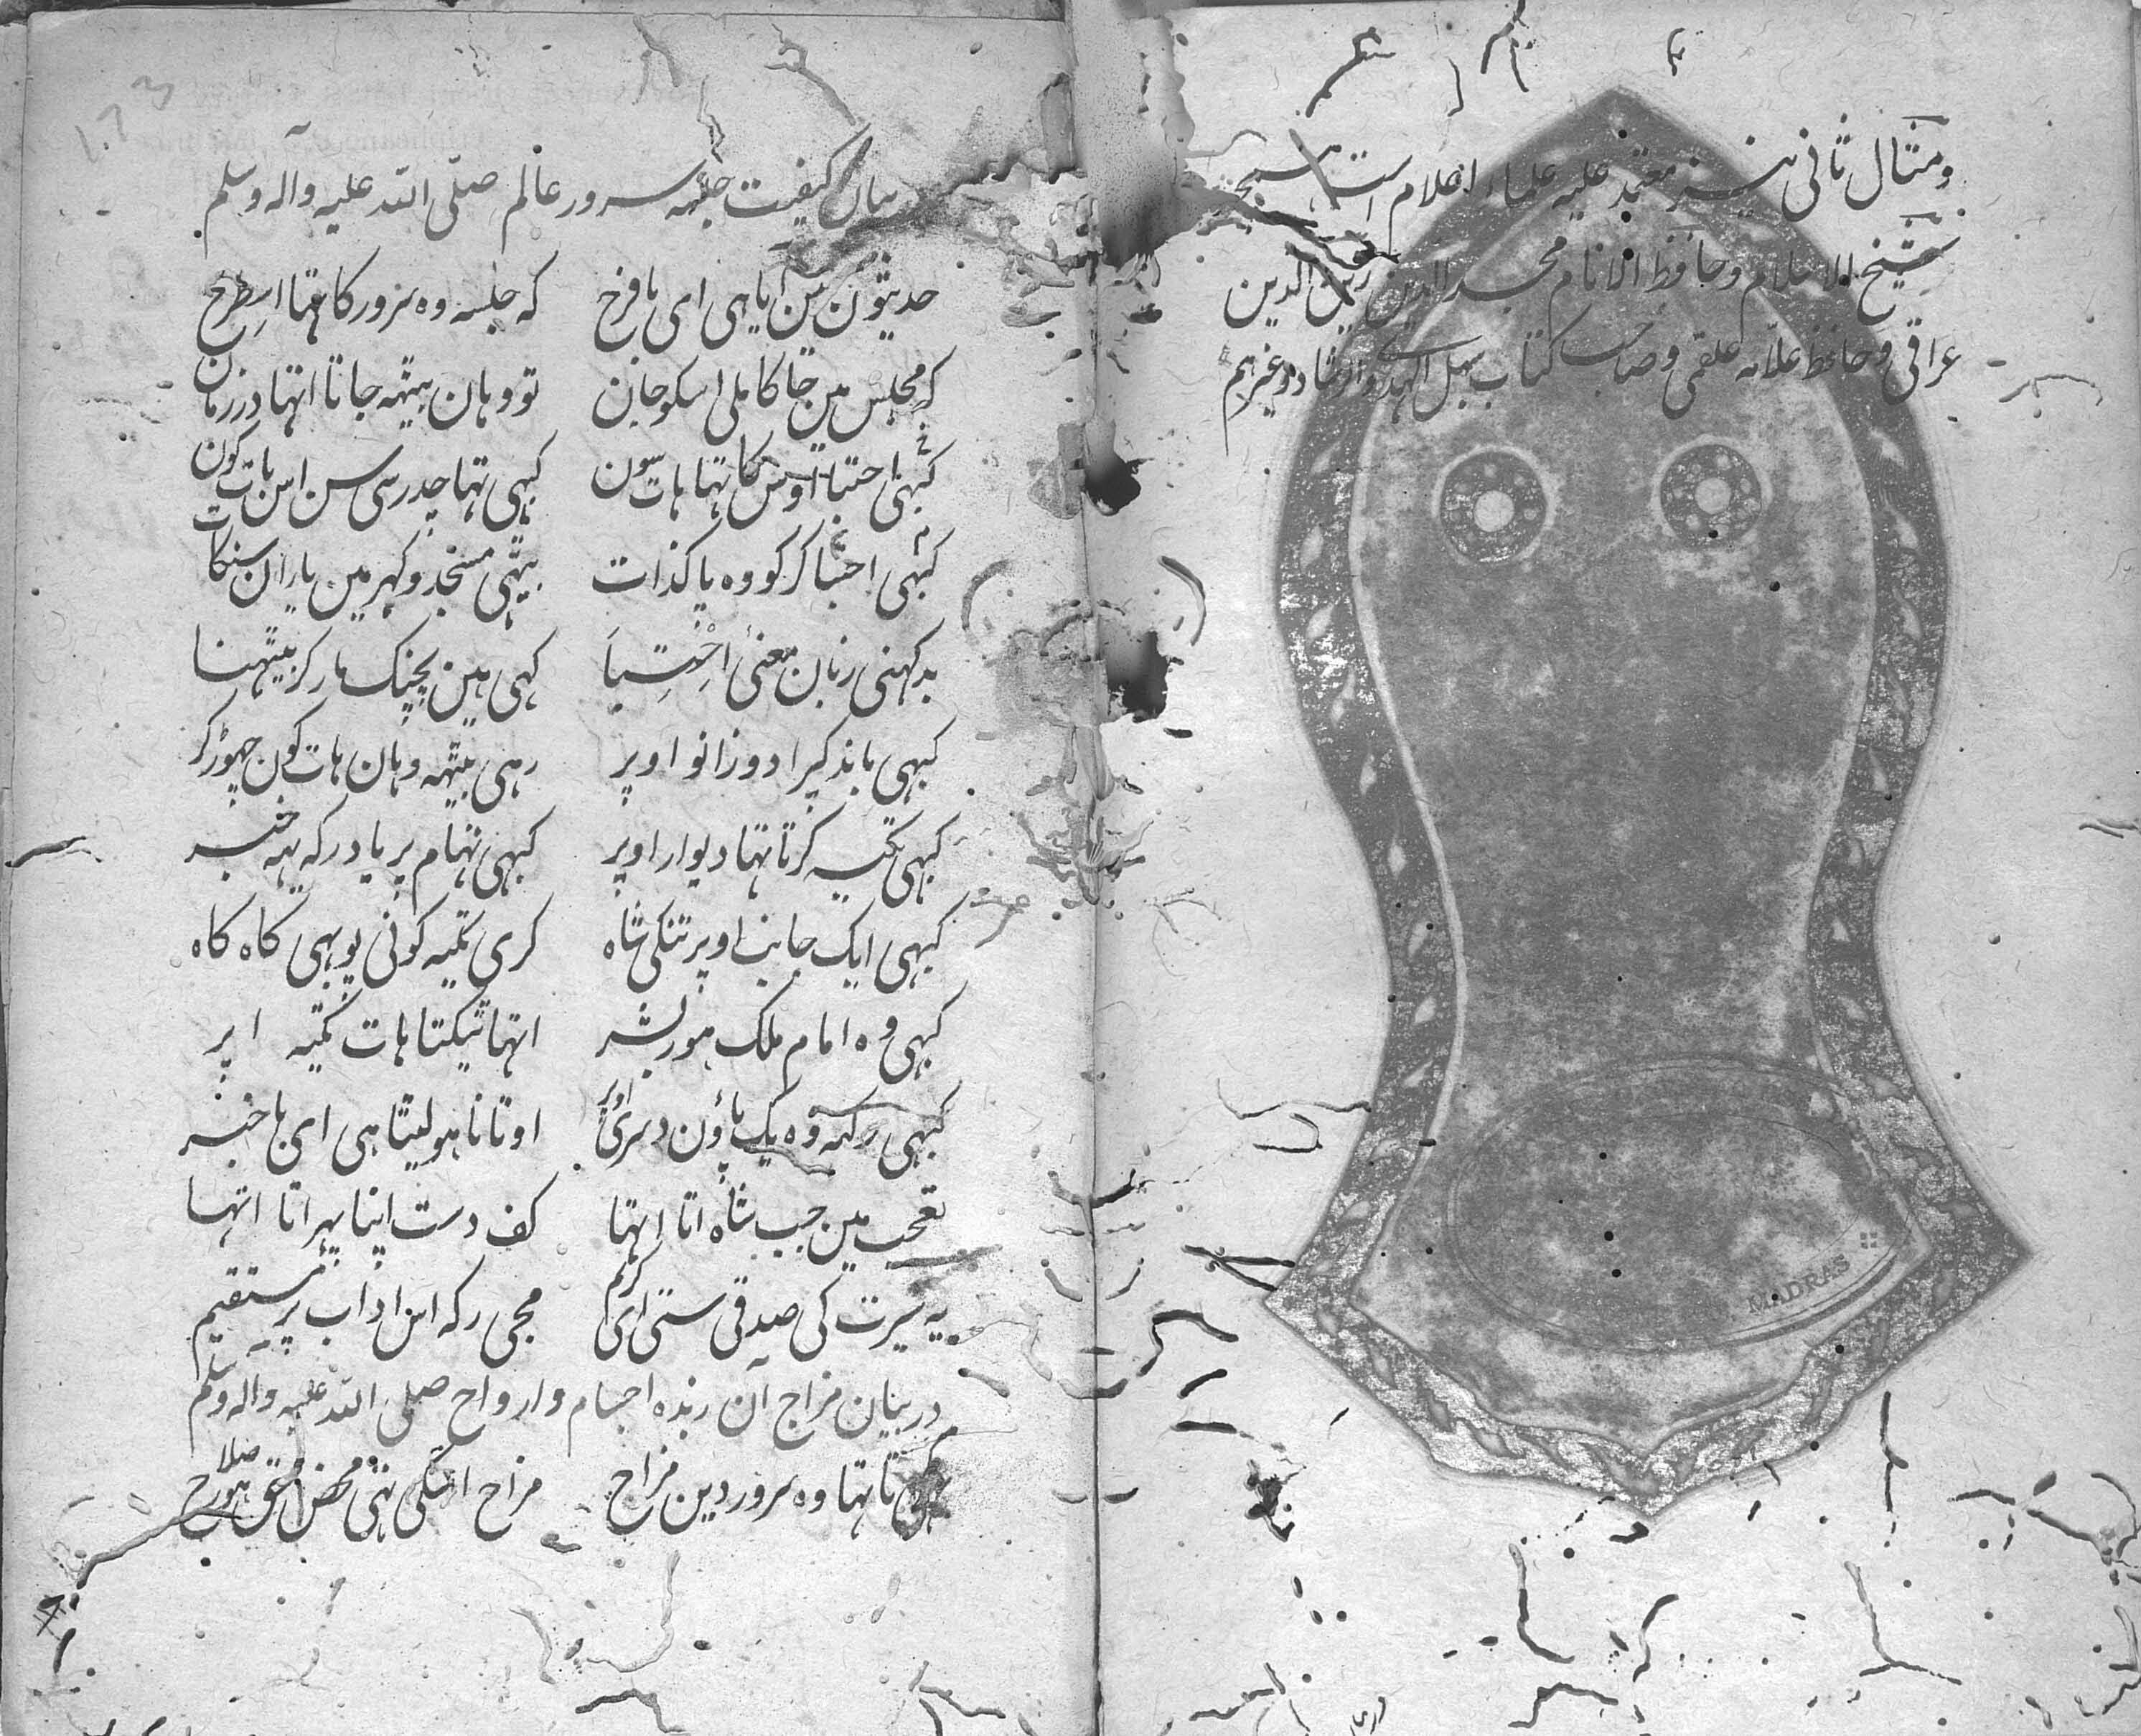 ومثال ثانی نیز معتمد علیه علماء اعلام است
شیخ الاسلام وحافظ الانام الدین زین الدین
عراقی وحافظ علامه علقمی وصاحب کتاب سبل الهدی والرشاد وغیرهم
MADRAS
بیان کیفیت جلسه سرور عالم صلی الله علیه واله وسلم
حدیثون مین آیا هی ای بافرح که جلسه وه سرور کا تها اسطرح
که مجلس مین جاکا ملی اسکو جان تو وهان بیتهه جاتا اتها درزمان
کبهی احتبا اوس کا تها هات سون کبهی تها چدر سی سن اس بات کون
کبهی احتبا کر کو وه پاکذات بیتهی مسجد و گهر مین یاران سنگات
کهی هین پچنک مار کر بیتهنا
کبهی دوزانو اوپر رهی بیتهه وهان هات کون چهوڑکر
کبهی تکیه کرتا تها دیوار اوپر کبهی تهام پر یاد رکه یه خبر
کبهی ایک جانب اوپر تنکی شاه کری تکیه کونی پو بهی کاه کاه
کبهی وه امام ملک هور بشر اتها تیکتا هات تکیه اپر
کبهی رکهه وه یک پاؤن دسری اوپر اوتانا هو لیتا هی ای باخبر
تعجب مین جب شاه اتا اتها کف دست اپنا پهراتا اتها
یه سیرت کی صدقی ستی ای کریم مجی رکه اس اداب پر مستقیم
در بیان مزاح آن زنده اجسام وارواح صلی الله علیه واله وسلم
کرتا تها وه سرور دین مزاح مزاح انکی تهی محض حق هور صلاح